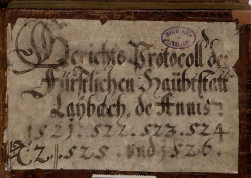 Gerichts Protocoll der
Fürstlichen Haübtstatt
Laybach, de Annis
1521. 522. 523. 524
525. und 1526.